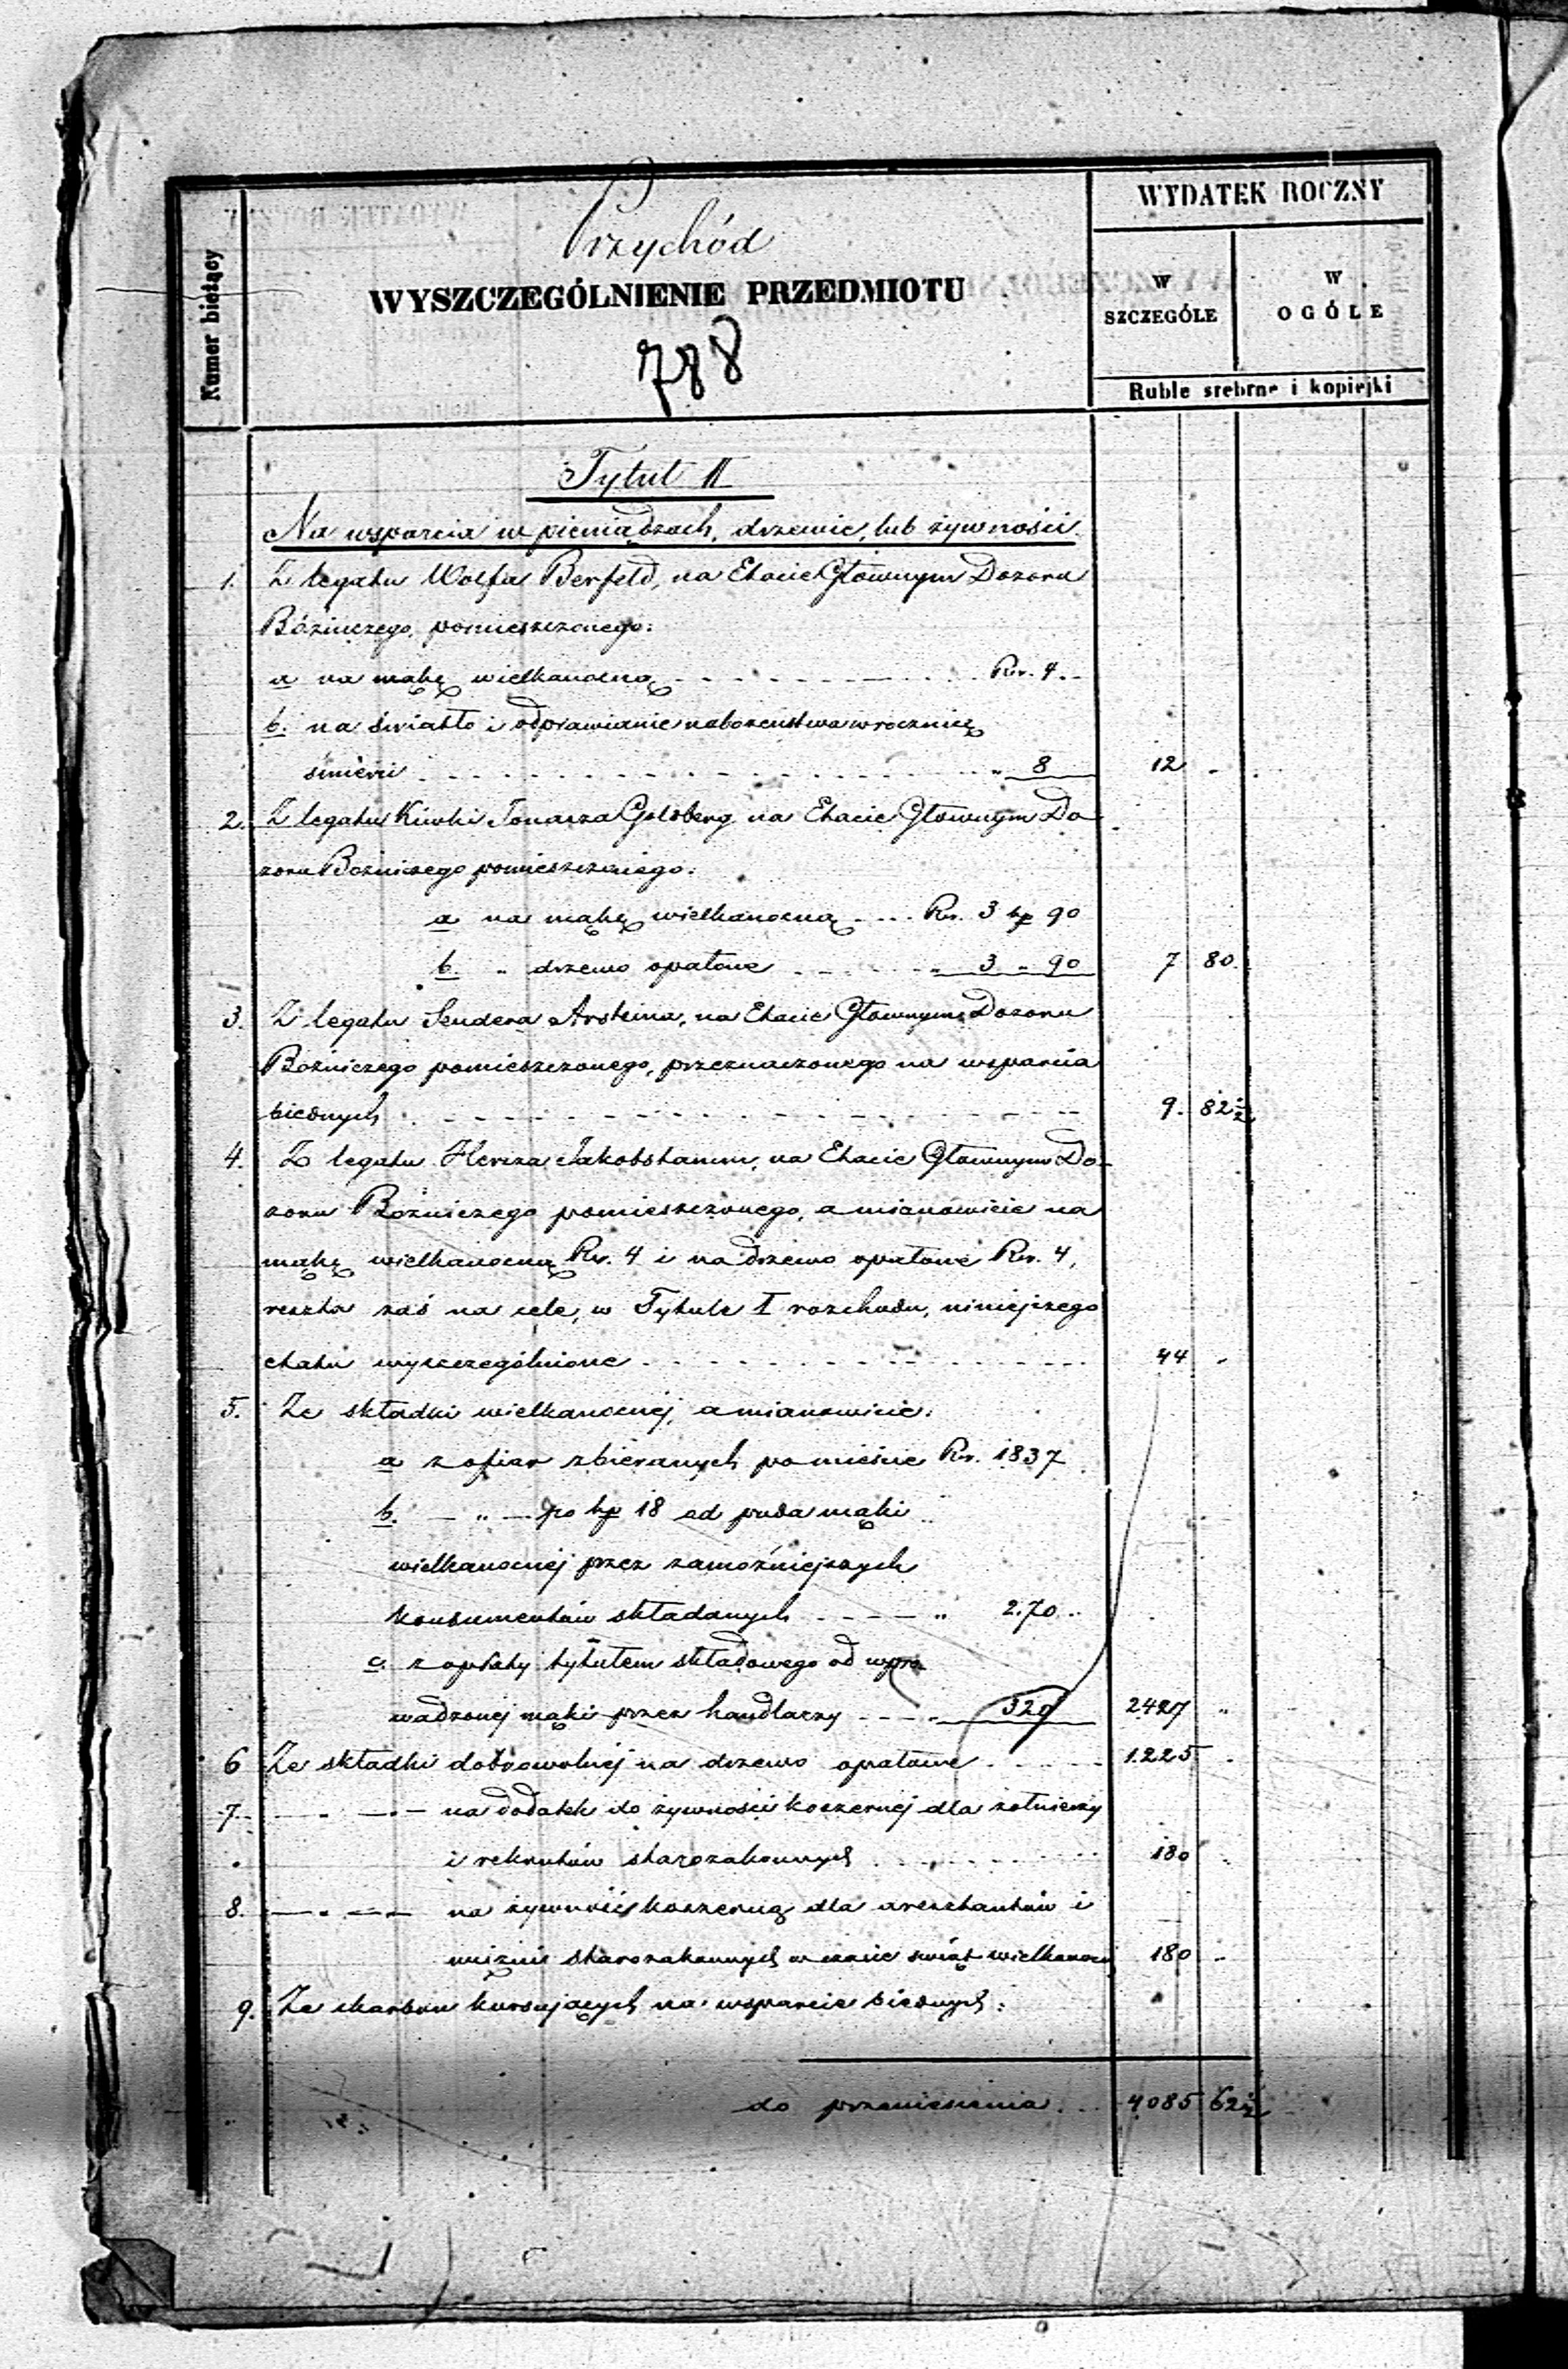 Przychód
WYDATEK ROCZNY
Numer bieżący
WYSZCZEGÓLNIENIE PRZEDMIOTU
W SZCZEGÓLE
W OGÓLE
788
Ruble srebrne i kopiejki
Tytuł II
Na wsparcia w pieniądzach, drzewie, lub żywności
1. Z legatu Wolfa Berfeld, na Etacie Głównym Dozoru
Bóźniczego, pomieszczonego:
a na mąkę wielkanocną Rsr. 4.
b. na światło i odprawianie nabożeństwa w rocznicę
śmierci " 8 12 "
2. Z legatu Kiwki Tonasza Goldberg na Etacie Głównym Do-
zoru Bożniczego pomieszczonego:
a na mąkę wielkanocną Rsr. 3 kp 90
b. " drzewo opałowe " 3 " 90 7 80.
3. Z legatu Sendera Arsteina, na Etacie Głównym Dozoru
Bożniczego pomieszczonego, przeznaczonego na wsparcia
biednych 9. 82½
4. Z legatu Hersza Jakobstamm, na Etacie Głównym Do-
zoru Bożniczego pomieszczonego, a mianowicie na
mąkę wielkanocną Rsr. 4 i na drzewo opałowe Rsr. 4,
reszta zaś na cele, w Tytule I rozchodu, niniejszego
etatu wyszczególnione 44 "
5. Ze składki wielkanocnej, a mianowicie:
a z ofiar zbieranych po mieście Rsr. 1837
b. — " — po kp 18 od puda mąki
wielkanocnej przez zamożniejszych
konsumentów składanych " 270
c. z opłaty tytułem składowego od wpro
wadzonej mąki przez handlarzy " 320 2427 "
6 Ze składki dobrowolnej na drzewo opałowe 1.225 "
7. — " — na dodatek do żywności koszernej dla żołnierzy
i rekrutów starozakonnych 180 "
8. — " — na żywność koszerną dla aresztantów i
więźni starozakonnych w czasie świąt wielkanocn 180 "
9. Ze skarbon kursujących na wsparcie biednych:
do przeniesienia 4085 62½